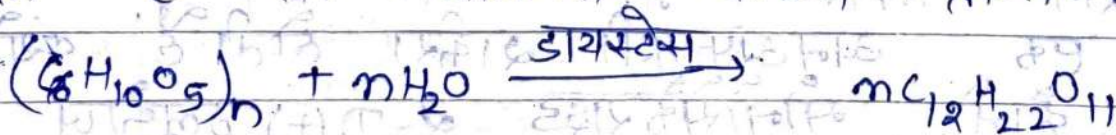 (C₆H₁₀O₅)ₙ + nH₂O डायस्टेस→ nC₁₂H₂₂O₁₁